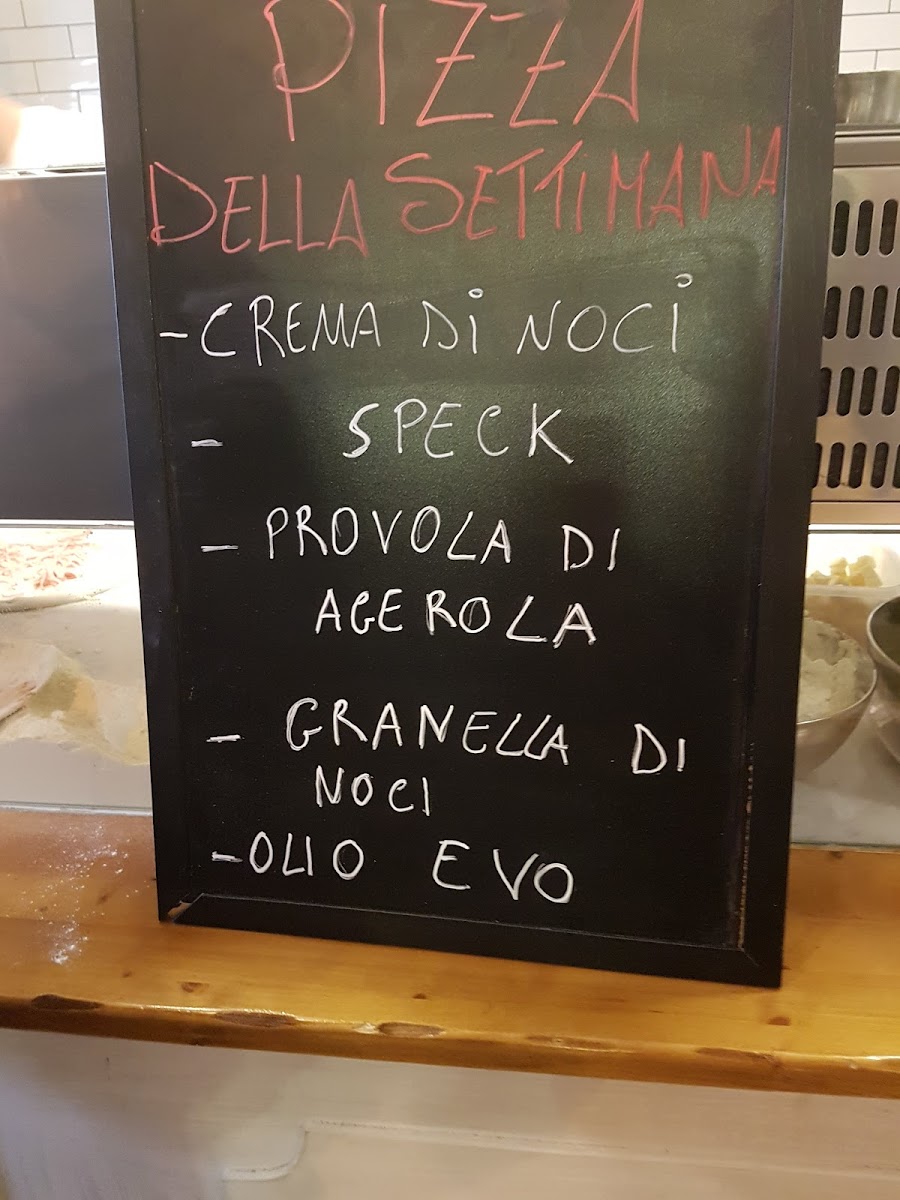 PIZZA
DELLA SETTIMANA
- CREMA Di NOCi
- SPECK
- PROVOLA DI
AGEROLA
- GRANELLA DI
NOCI
- OLIO EVO